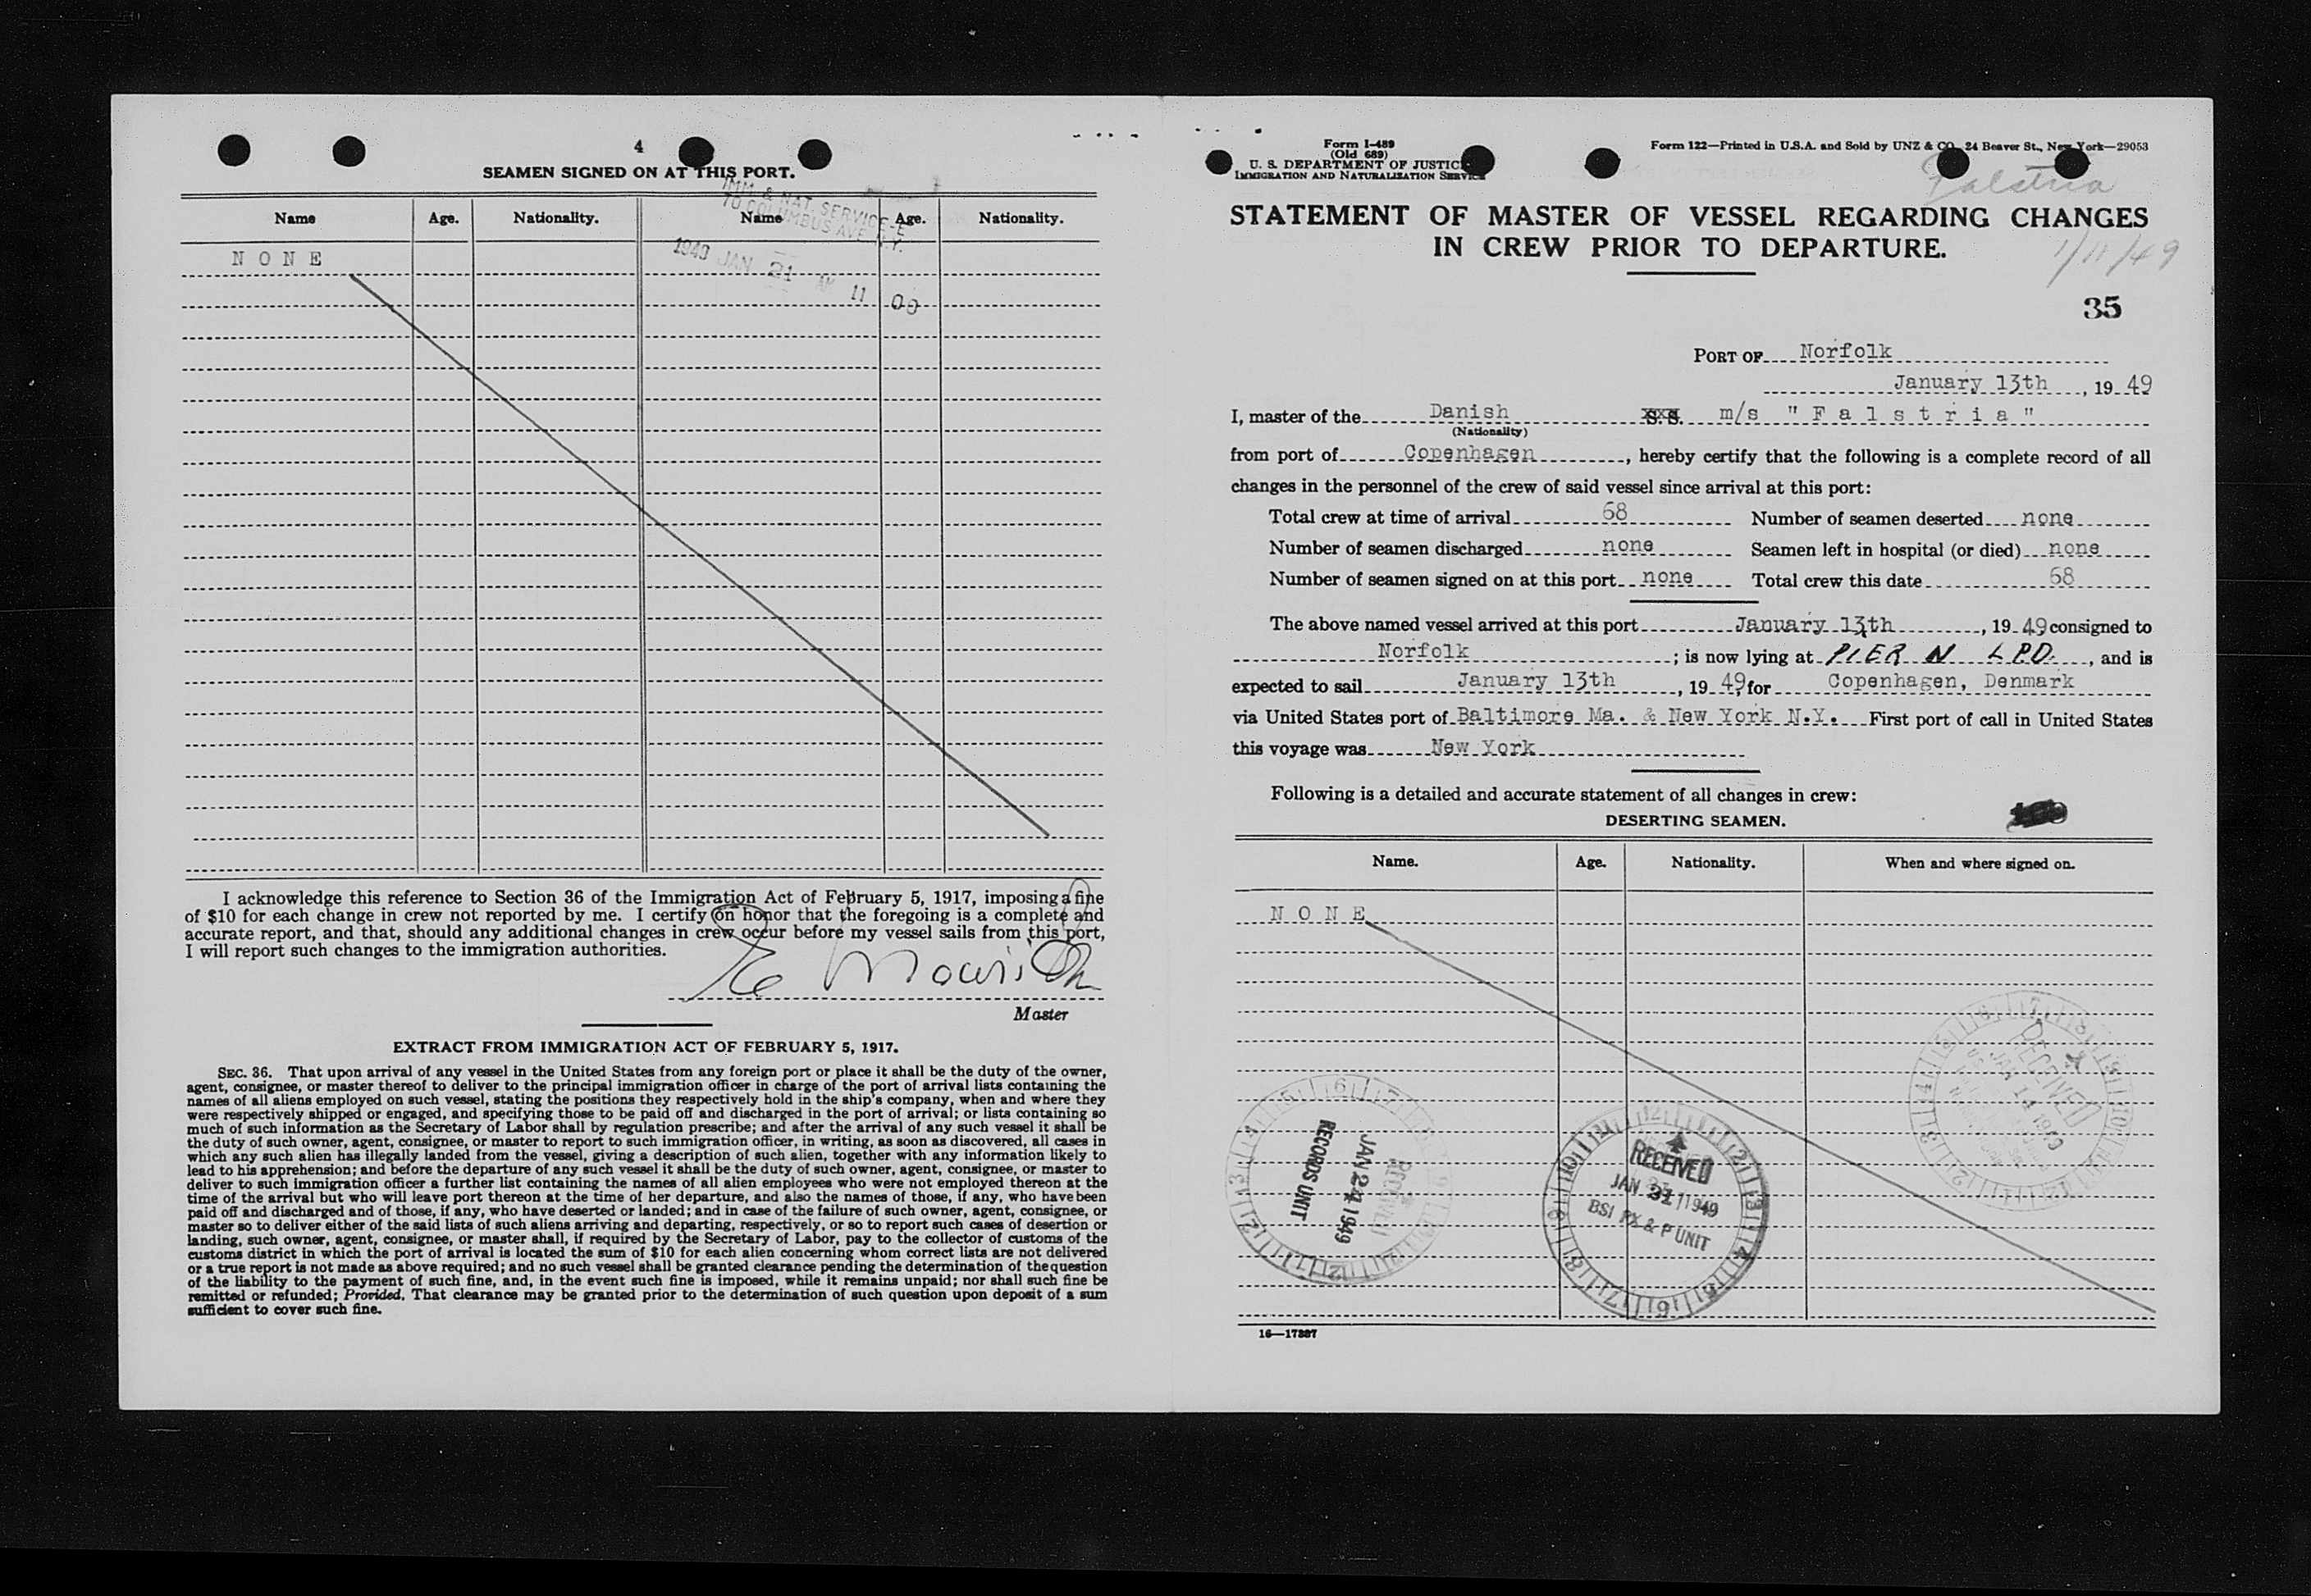 4
SEAMEN SIGNED ON AT THIS PORT.
Name Age. Nationality. Name Age. Nationality.
IMM. & NAT. SERVICE
70 COLUMBUS AVE. N.Y.
1949 JAN 21 AM 11 00
N O N E
I acknowledge this reference to Section 36 of the Immigration Act of February 5, 1917, imposing a fine
of $10 for each change in crew not reported by me. I certify on honor that the foregoing is a complete and
accurate report, and that, should any additional changes in crew occur before my vessel sails from this port,
I will report such changes to the immigration authorities.
Master
EXTRACT FROM IMMIGRATION ACT OF FEBRUARY 5, 1917.
SEC. 36. That upon arrival of any vessel in the United States from any foreign port or place it shall be the duty of the owner,
agent, consignee, or master thereof to deliver to the principal immigration officer in charge of the port of arrival lists containing the
names of all aliens employed on such vessel, stating the positions they respectively hold in the ship's company, when and where they
were respectively shipped or engaged, and specifying those to be paid off and discharged in the port of arrival; or lists containing so
much of such information as the Secretary of Labor shall by regulation prescribe; and after the arrival of any such vessel it shall be
the duty of such owner, agent, consignee, or master to report to such immigration officer, in writing, as soon as discovered, all cases in
which any such alien has illegally landed from the vessel, giving a description of such alien, together with any information likely to
lead to his apprehension; and before the departure of any such vessel it shall be the duty of such owner, agent, consignee, or master to
deliver to such immigration officer a further list containing the names of all alien employees who were not employed thereon at the
time of the arrival but who will leave port thereon at the time of her departure, and also the names of those, if any, who have been
paid off and discharged and of those, if any, who have deserted or landed; and in case of the failure of such owner, agent, consignee, or
master so to deliver either of the said lists of such aliens arriving and departing, respectively, or so to report such cases of desertion or
landing, such owner, agent, consignee, or master shall, if required by the Secretary of Labor, pay to the collector of customs of the
customs district in which the port of arrival is located the sum of $10 for each alien concerning whom correct lists are not delivered
or a true report is not made as above required; and no such vessel shall be granted clearance pending the determination of the question
of the liability to the payment of such fine, and, in the event such fine is imposed, while it remains unpaid; nor shall such fine be
remitted or refunded; Provided, That clearance may be granted prior to the determination of such question upon deposit of a sum
sufficient to cover such fine.
Form I-489
(Old 689)
U. S. DEPARTMENT OF JUSTICE
IMMIGRATION AND NATURALIZATION SERVICE
Form 122—Printed in U.S.A. and Sold by UNZ & CO. 24 Beaver St., New York—29053
Falstria
STATEMENT OF MASTER OF VESSEL REGARDING CHANGES
IN CREW PRIOR TO DEPARTURE.
1/11/49
35
PORT OF Norfolk
January 13th, 19 49
I, master of the Danish S.S. m/s "F a l s t r i a"
(Nationality)
from port of Copenhagen, hereby certify that the following is a complete record of all
changes in the personnel of the crew of said vessel since arrival at this port:
Total crew at time of arrival 68 Number of seamen deserted none
Number of seamen discharged none Seamen left in hospital (or died) none
Number of seamen signed on at this port none Total crew this date 68
The above named vessel arrived at this port January 13th, 19 49 consigned to
Norfolk; is now lying at PIER N L P.D., and is
expected to sail January 13th, 19 49, for Copenhagen, Denmark
via United States port of Baltimore Ma. & New York N.Y. First port of call in United States
this voyage was New York
Following is a detailed and accurate statement of all changes in crew:
DESERTING SEAMEN.
Name. Age. Nationality. When and where signed on.
N O N E
RECEIVED
JAN 14 1949
RECEIVED
JAN 24 1949
RECORDS UNIT
RECEIVED
JAN 31 1949
BSI PX & P UNIT
16—17387